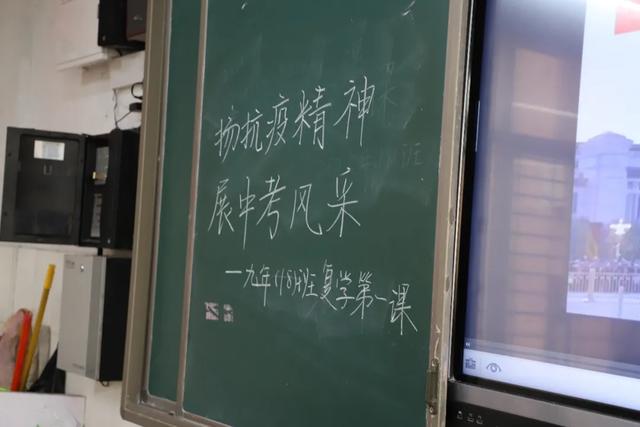 扬抗疫精神
展中考风采
—九年(18)班复学第一课